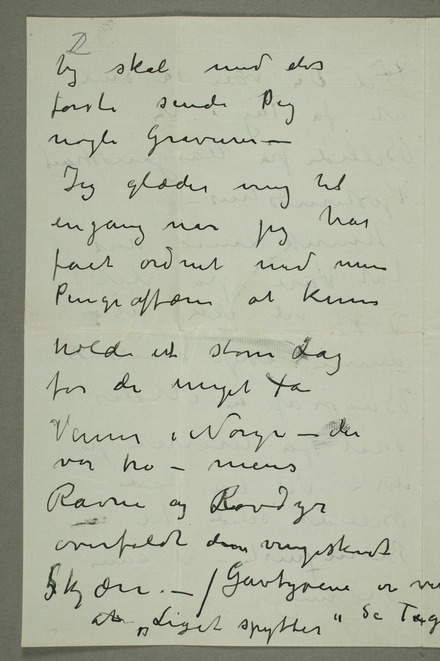 2
Jeg skal med det
første sende Dig
nogle Gravurer —
Jeg glæder mig til
engang når jeg har
fået ordnet med mine
Pengeaffærer at kunne
holde et stort Lag
for de meget få
Venner i Norge — der
var tro — mens
Ravne og Rovdyr
overfaldt den vingeskudt
Skjære. — / Gavtyvene er
at „Liget spytter"